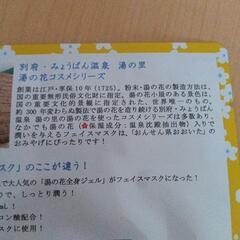 別府・みょうばん温泉 湯の里
湯の花コスメシリーズ
創業は江戸・享保10年(1725)、粉末・湯の花の製造方法は、
国の重要無形民俗文化財に指定。湯の花小屋のある景色は、
国の重要文化的景観に指定された、世界唯一のもの。
約300年変わらぬ製法で湯の花を造り続ける別府・みょうばん
温泉 湯の里の湯の花を使ったコスメシリーズは多数あり、
なかでも湯の花(保湿成分:温泉沈殿抽出物)入りで
潤いを与えるフェイスマスクは、「おんせん県おおいた」の
おみやげにぴったりです!
スク」のここが違う!
で大人気の「湯の花全身ジェル」がフェイスマスクになった!
、しっとり潤う!
mL!
コン酸配合!
スクに使用!